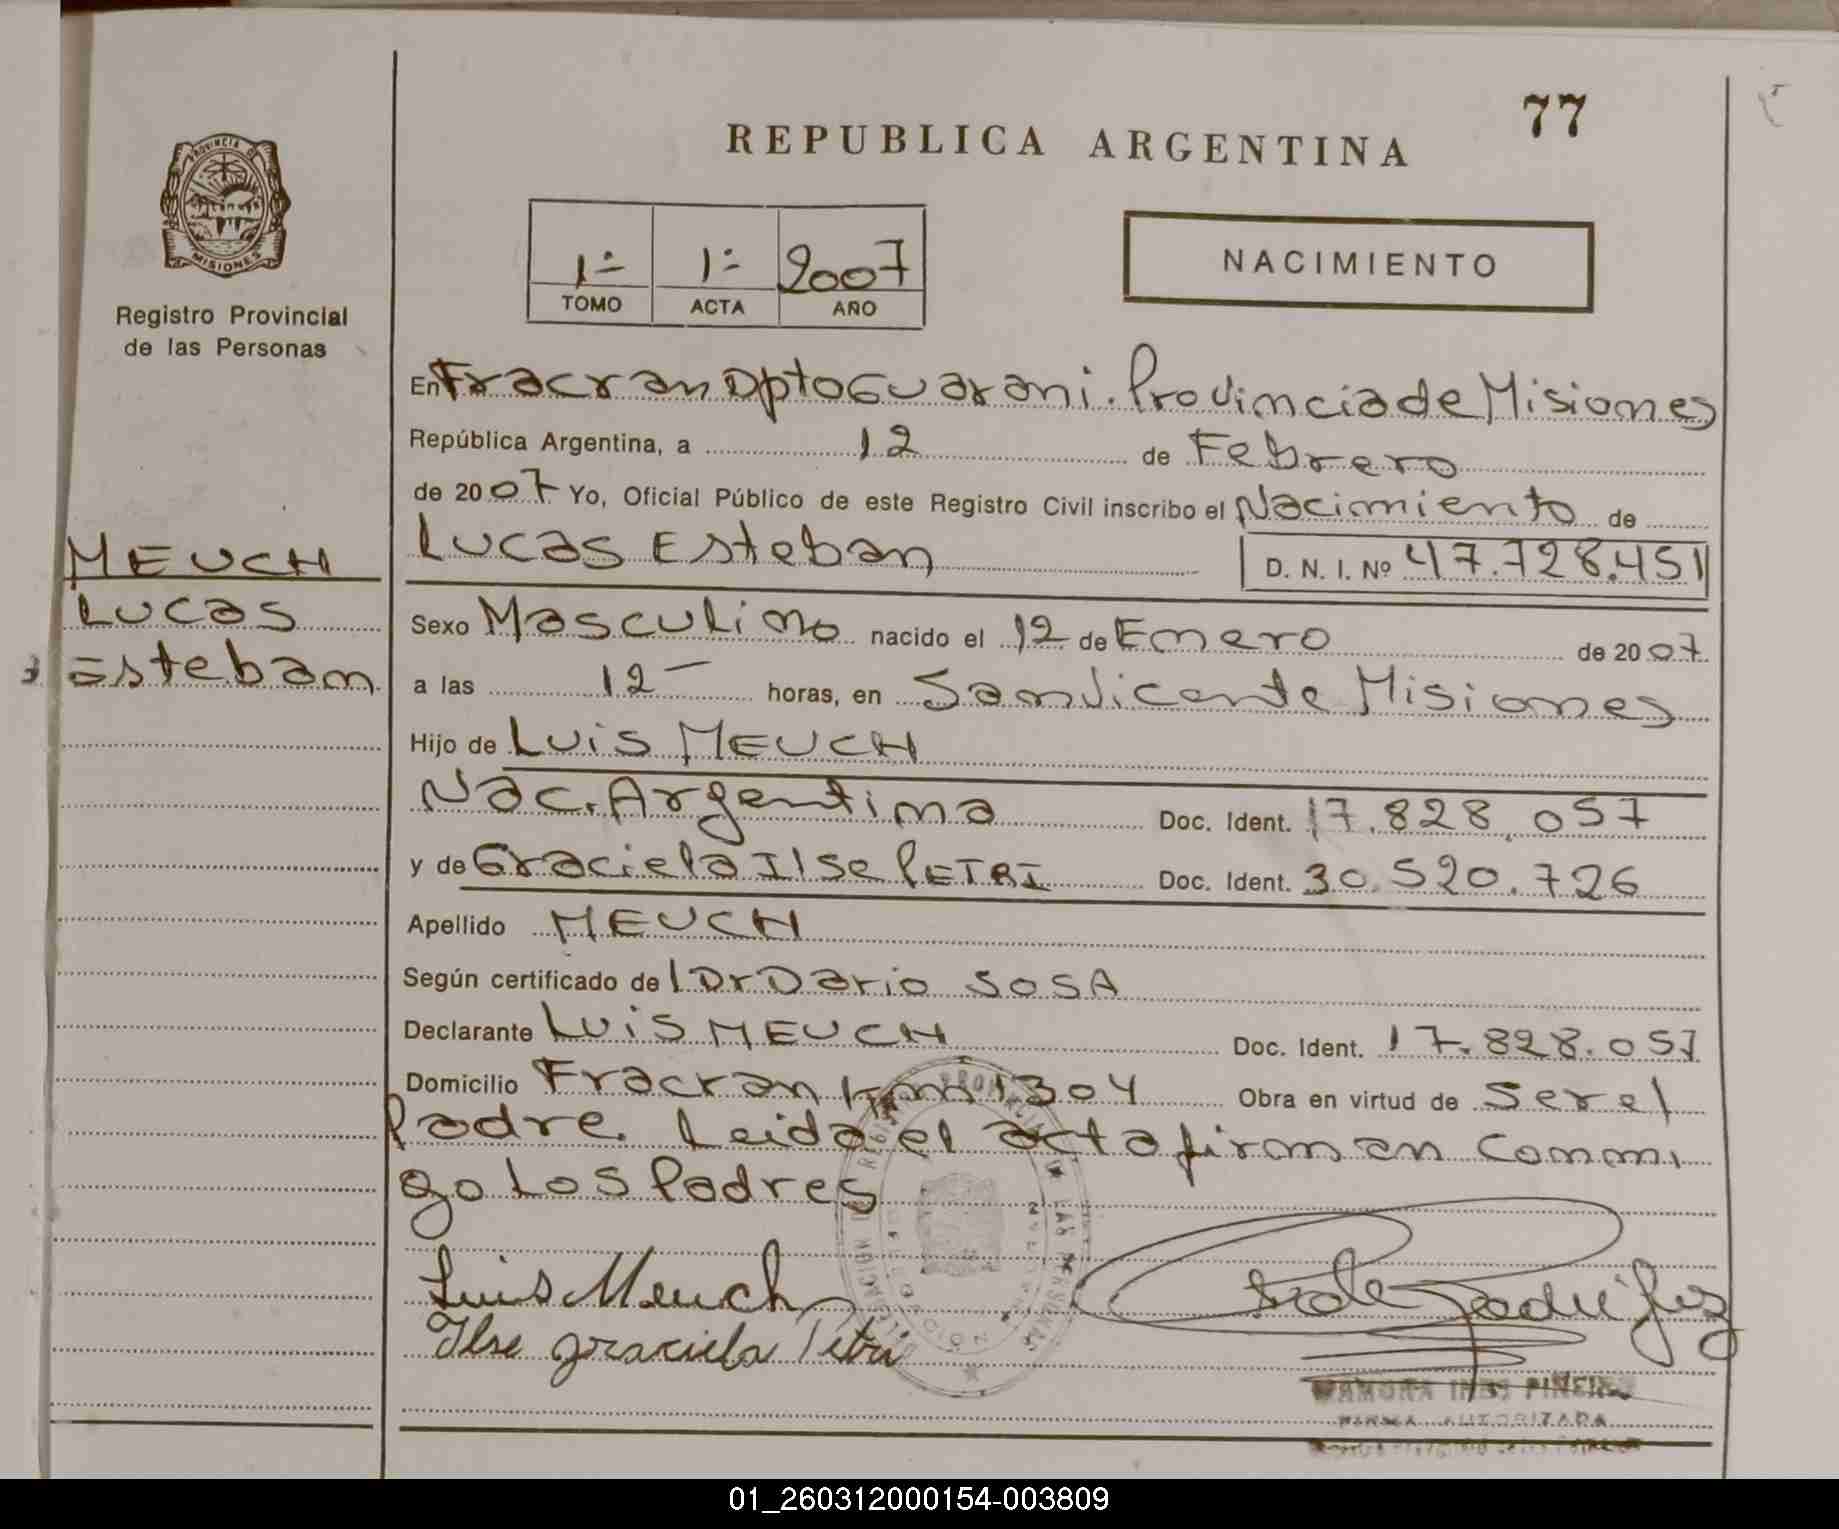 77
REPUBLICA ARGENTINA
PROVINCIA DE
MISIONES
Registro Provincial
de las Personas
1- 1- 2007
TOMO ACTA AÑO
NACIMIENTO
En Fracran Dpto Guarani. Provincia de Misiones
República Argentina, a 12 de Febrero
de 2007 Yo, Oficial Público de este Registro Civil inscribo el Nacimiento de
Lucas Esteban D. N. I. Nº 47.728.451
MEUCH
Lucas
Esteban
Sexo Masculino nacido el 12 de Enero de 2007
a las 12 - horas, en San Vicente Misiones
Hijo de Luis MEUCH
Nac. Argentina Doc. Ident. 17.828.057
y de Graciela Ilse PETRI Doc. Ident. 30.520.726
Apellido MEUCH
Según certificado de l Dr Dario SOSA
Declarante Luis MEUCH Doc. Ident. 17.828.057
Domicilio Fracran Km 1304 Obra en virtud de Ser el
Padre. Leida el acta firman conmi
go Los Padres
Luis Meuch
Ilse Graciela Petri
RAMONA INES PIÑEIRO
FIRMA AUTORIZADA
01_260312000154-003809